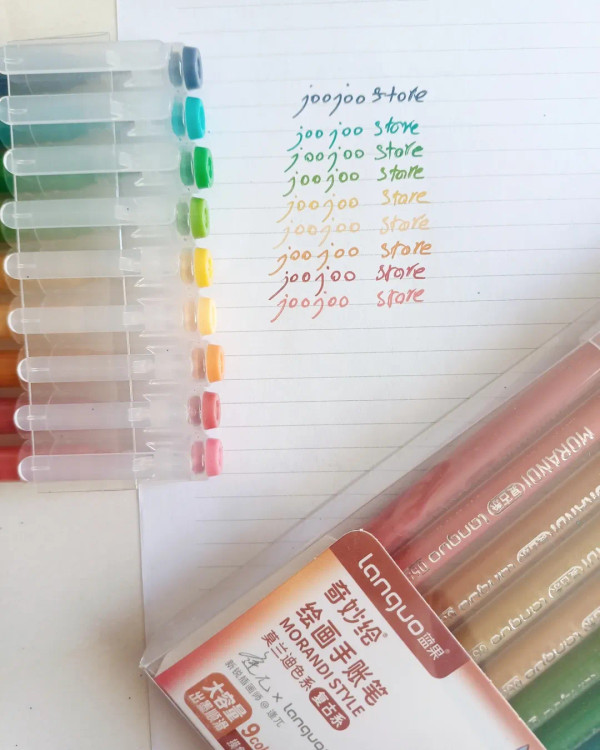 joojoo store
joojoo store
joojoo store
joojoo store
joojoo store
joojoo store
joojoo store
joojoo store
joojoo store
languo 蓝果
奇妙绘
绘画手账笔
MORANDI STYLE
莫兰迪色系 复古系
languo
新锐插画师@逢兀
大容量
出墨顺滑
9
languo
languo
languo